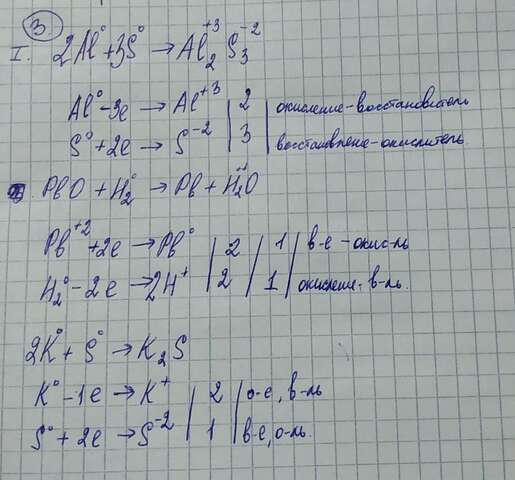 3
I. 2Al⁰ + 3S⁰ → Al₂⁺³ S₃⁻²
Al⁰ - 3e → Al⁺³ | 2 | окисление - восстановитель
S⁰ + 2e → S⁻² | 3 | восстановление - окислитель
PbO + H₂⁰ → Pb + H₂O
Pb⁺² + 2e → Pb⁰ | 2 | 1 | в-е - окис-ль
H₂⁰ - 2e → 2H⁺ | 2 | 1 | окисление. в-ль.
2K⁰ + S⁰ → K₂S
K⁰ - 1e → K⁺ | 2 | о-е, в-ль
S⁰ + 2e → S⁻² | 1 | в-е, о-ль.